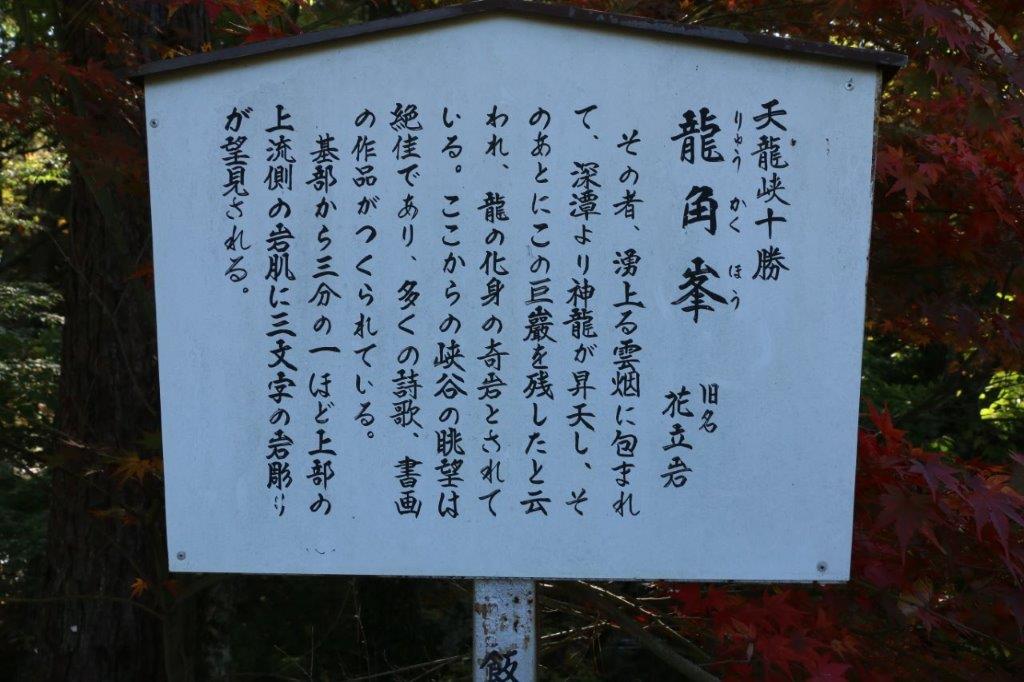 天龍峡十勝
りゅうかくほう
龍角峯
旧名
花立岩
その者、湧上る雲烟に包まれ
て、深潭より神龍が昇天し、そ
のあとにこの巨巌を残したと云
われ、龍の化身の奇岩とされて
いる。ここからの峡谷の眺望は
絶佳であり、多くの詩歌、書画
の作品がつくられている。
基部から三分の一ほど上部の
上流側の岩肌に三文字の岩彫り
が望見される。
飯